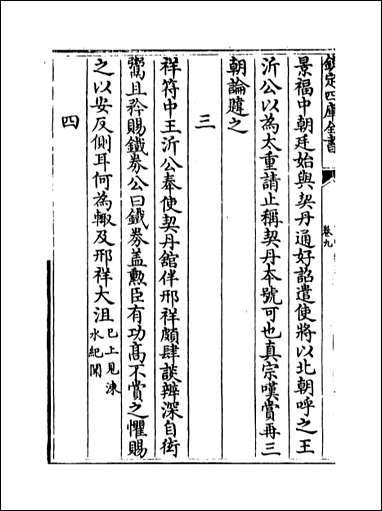 欽定四庫全書
卷九
景福中朝廷始與契丹通好詔遣使將以北朝呼之王
沂公以為太重請止稱契丹本號可也真宗嘆賞再三
朝論韙之
三
祥符中王沂公奉使契丹館伴邢祥頗肆談辨深自衒
鬻且矜賜鐵券公曰鐵券盖勲臣有功髙不賞之懼賜
之以安反側耳何為輙及邢祥大沮已上見涑水紀聞
四